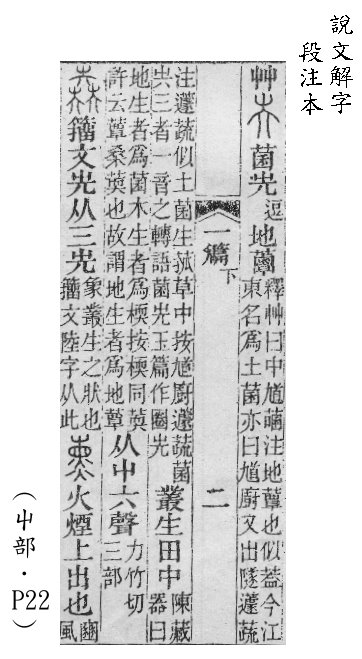 說文解字
段注本
艸
菌圥
逗
地蕈
釋艸曰中馗菌注地蕈也似蓋今江
東名爲土菌亦曰馗廚又出隧蘧蔬
一篇下
二
注蘧蔬似土菌生菰草中按馗廚蘧蔬菌
圥三者一音之轉語菌圥玉篇作圈圥
叢生田中
陳藏
器曰
地生者爲菌木生者爲㮕按㮕同䓴
許云蕈桑䓴也故謂地生者爲地蕈
从屮六聲
力竹切
三部
籒文圥从三圥
象叢生之狀也
籒文陸字从此
火煙上出也
豳
風
（屮部．P22）